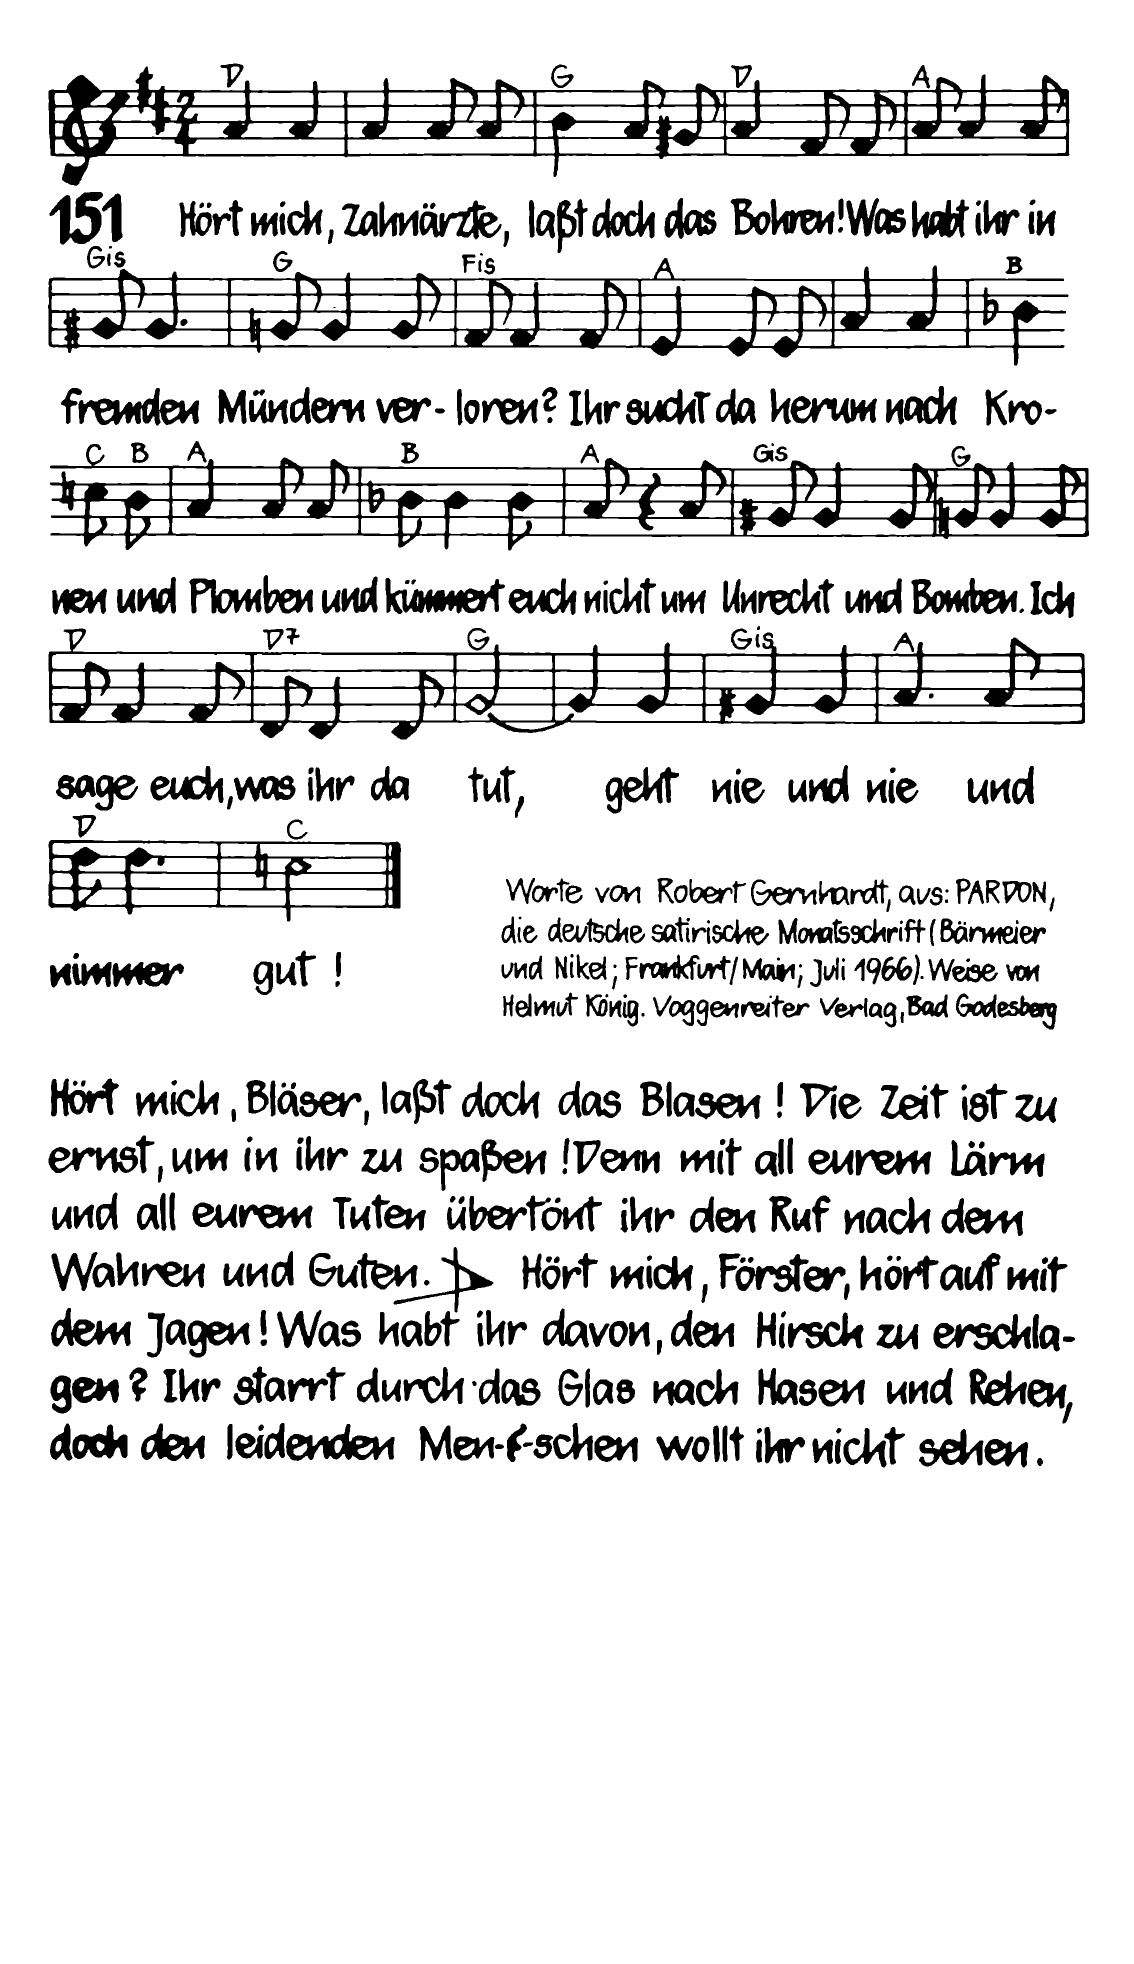 D G D A
151 Hört mich, Zahnärzte, laßt doch das Bohren! Was habt ihr in
Gis G Fis A B
fremden Mündern ver- loren? Ihr sucht da herum nach Kro-
C B A B A Gis G
nen und Plomben und kümmert euch nicht um Unrecht und Bomben. Ich
D D7 G Gis A
sage euch, was ihr da tut, geht nie und nie und
D C
nimmer gut !
Worte von Robert Gernhardt, aus: PARDON,
die deutsche satirische Monatsschrift (Bärmeier
und Nikel; Frankfurt/Main; Juli 1966). Weise von
Helmut König. Voggenreiter Verlag, Bad Godesberg
Hört mich, Bläser, laßt doch das Blasen! Die Zeit ist zu
ernst, um in ihr zu spaßen! Denn mit all eurem Lärm
und all eurem Tuten übertönt ihr den Ruf nach dem
Wahren und Guten. Hört mich, Förster, hört auf mit
dem Jagen! Was habt ihr davon, den Hirsch zu erschla-
gen? Ihr starrt durch das Glas nach Hasen und Rehen,
doch den leidenden Men- -schen wollt ihr nicht sehen.